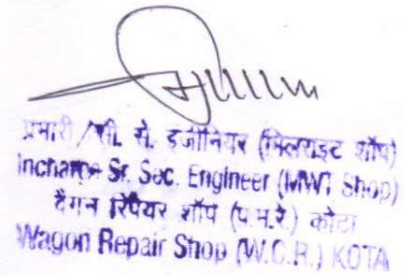 प्रभारी /सी. से. इंजीनियर (मिलराइट शॉप)
Incharge Sr. Sec. Engineer (MWT Shop)
वैगन रिपेयर शॉप (प.म.रे.) कोटा
Wagon Repair Shop (W.C.R.) KOTA